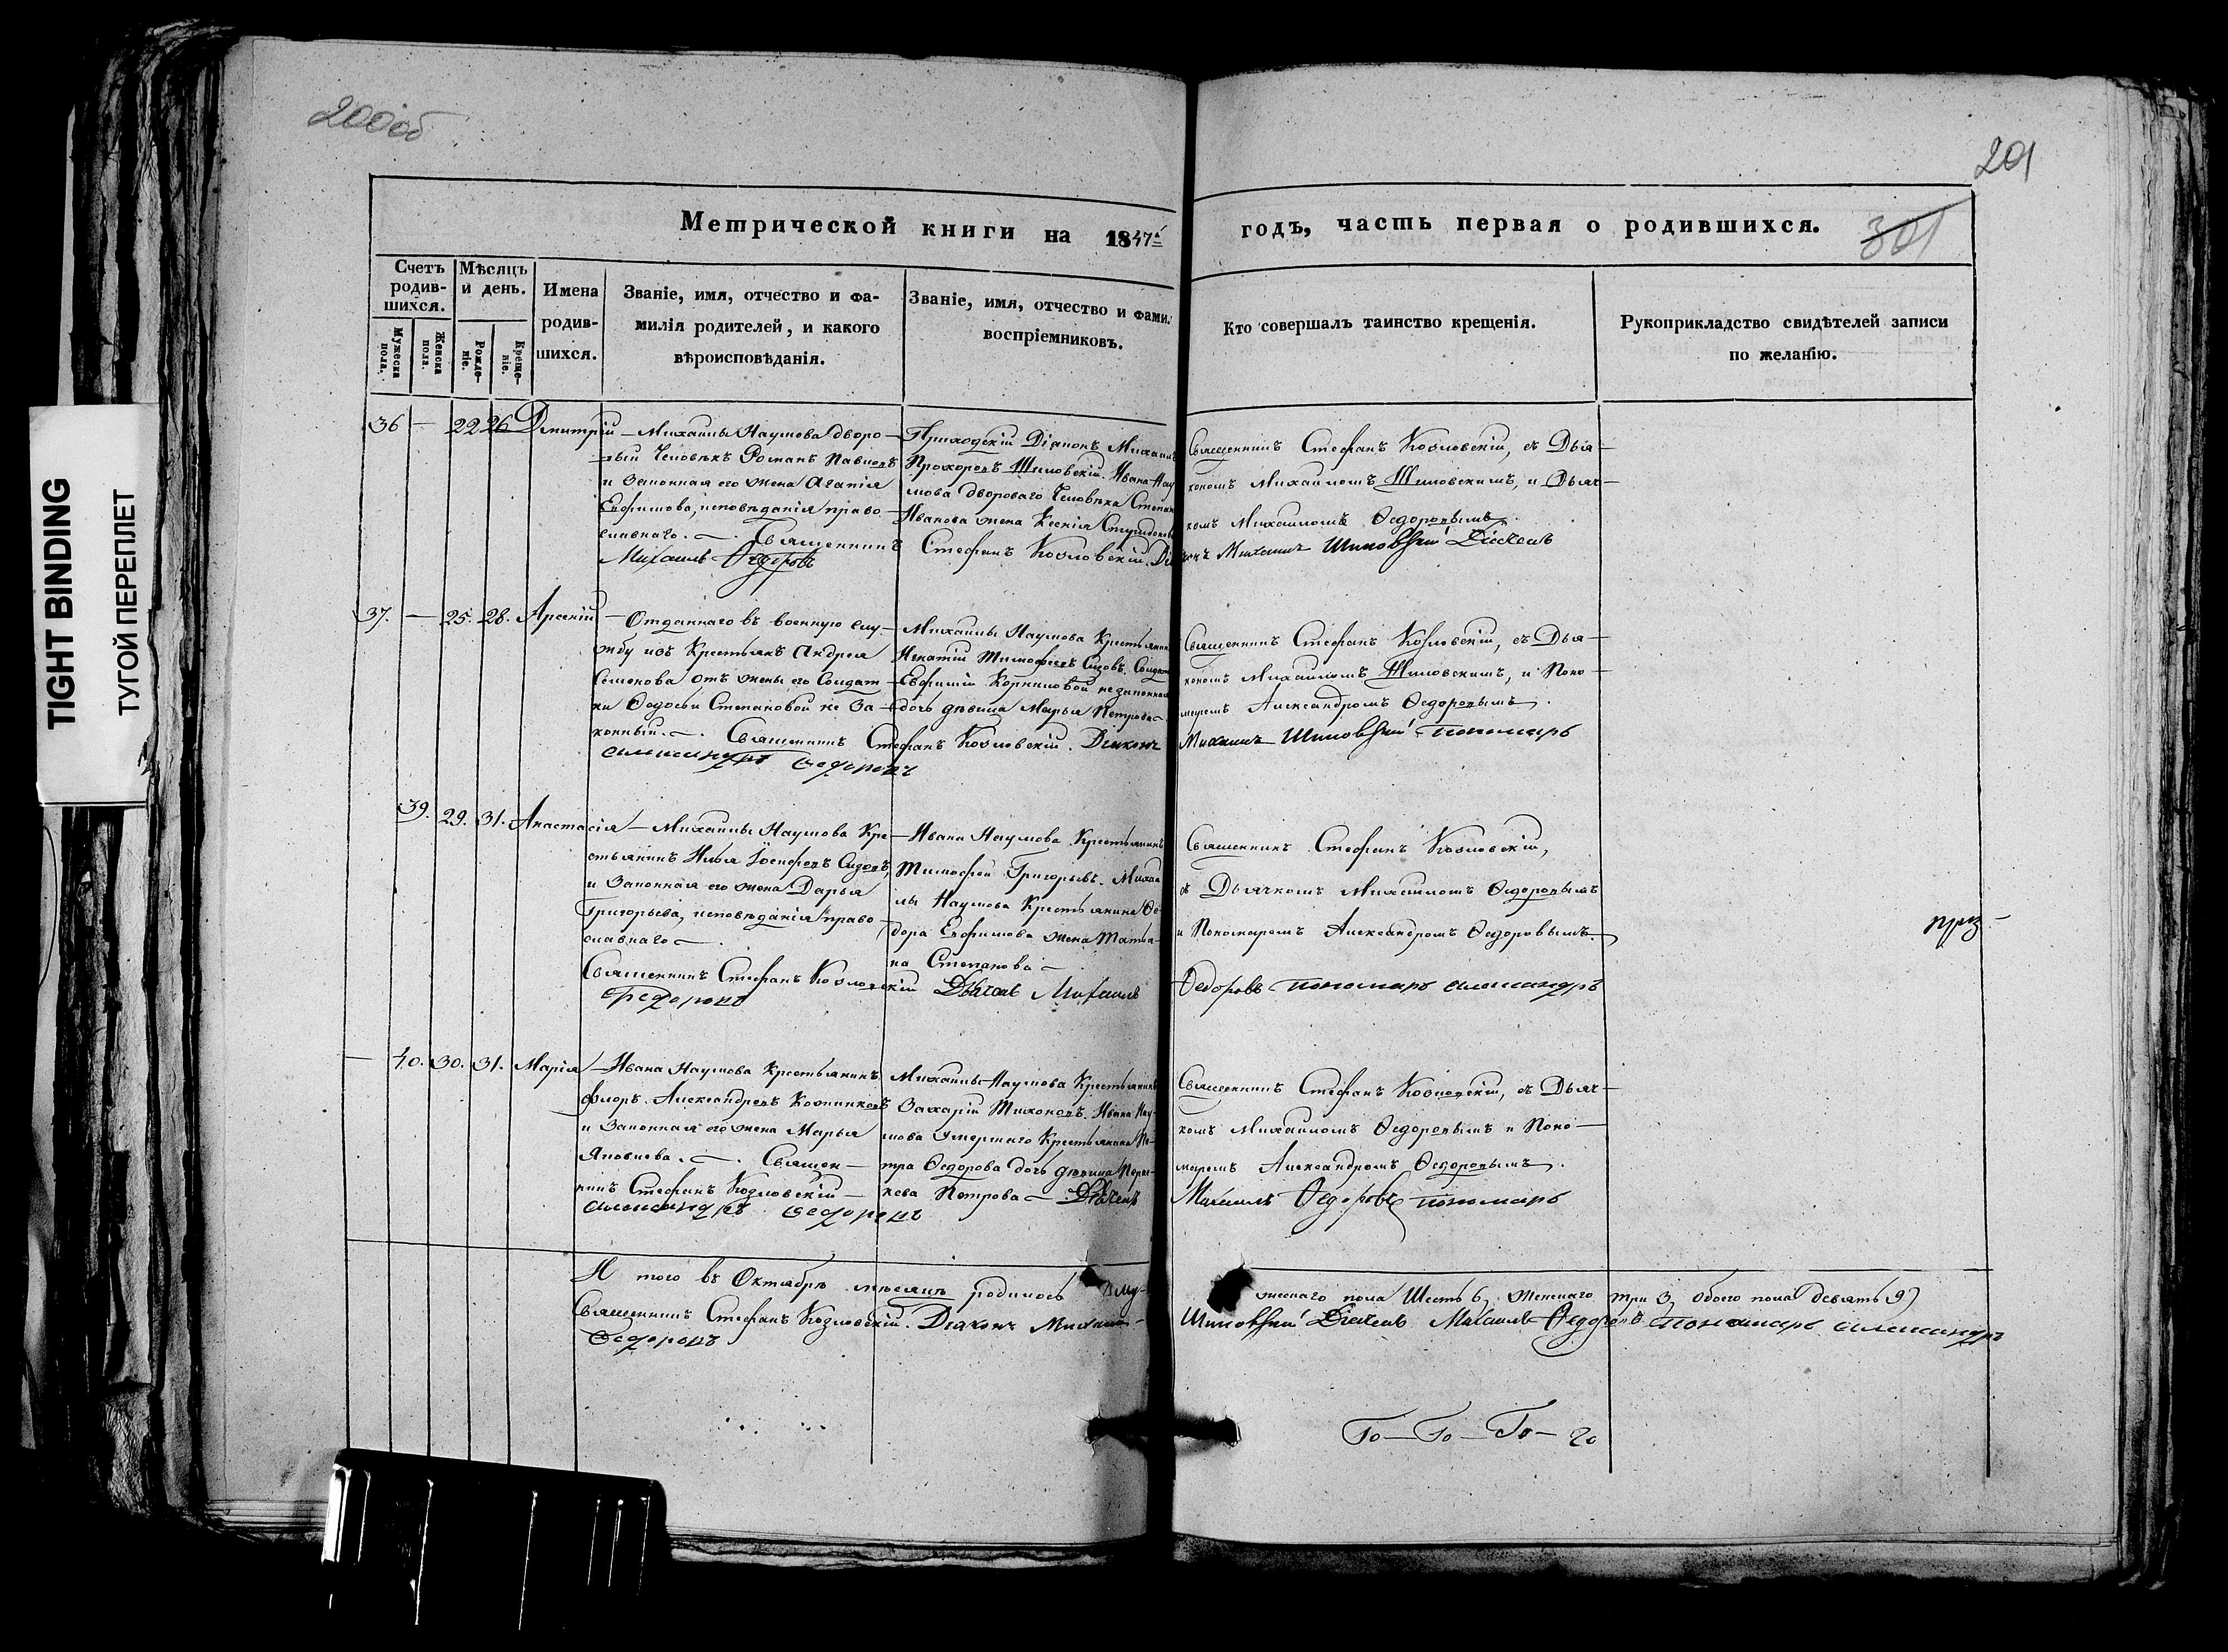 200об
201
301
TIGHT BINDING
ТУГОЙ ПЕРЕПЛЕТ
Метрической книги на 1847й годъ, часть первая о родившихся.
Счетъ родив-шихся.
Мужеска пола.
Женска пола.
Мѣсяцъ и день.
Рожде-ніе.
Креще-ніе.
Имена родив-шихся.
Званіе, имя, отчество и фа-
милія родителей, и какого
вѣроисповѣданія.
Званіе, имя, отчество и фами.
воспріемниковъ.
Кто совершалъ таинство крещенія.
Рукоприкладство свидѣтелей записи
по желанію.
36 — 22 26 Дмитрій — Михаилы Наумова дворо-
вый Человѣкъ Романъ Павловъ
и Законная его жена Агапія
Евфимова, исповѣданія право-
славнаго. —. Священникъ Стефанъ Козловскій. Діаконъ Михаилъ Шиловскій Дьячекъ
Михаилъ Федоровъ
Приходскій Діаконъ Михаилъ
Прохоровъ Шиловскій. Ивана Нау
мова двороваго Человѣка Степана
Иванова жена Ксенія
Священникъ Стефанъ Козловскій, съ Дья-
кономъ Михаиломъ Шиловскимъ, и Дьяч-
комъ Михаиломъ Ѳедоровымъ.
37. — 25. 28. Арсеній — Отданнаго въ военную слу-
жбу изъ Крестьянъ Андрея
Семенова отъ жены его Солдат-
ки Ѳедосьи Степановой не За-
конный. —. Священникъ Стефанъ Козловскій. Діаконъ Михаилъ Шиловскій пономарь
александръ Ѳедоровъ
Михаилы Наумова Крестьянинъ
Игнатій Тимофеевъ Сизовъ. Солдат
Евфиміи Корниловой незаконная
дочь дѣвица Марья Петрова —.
Священникъ Стефанъ Козловскій, съ Дья-
кономъ Михаиломъ Шиловскимъ, и Поно-
маремъ Александромъ Ѳедоровымъ.
39. 29. 31. Анастасія — Михаилы Наумова Кре-
стьянинъ Илья Іосифовъ Сизовъ,
и Законная его жена Дарья
Григорьева, исповѣданія право-
славнаго —.
Священникъ Стефанъ Козловскій Дьячекъ Михаилъ Федоровъ пономарь александръ
Ѳедоровъ
Ивана Наумова Крестьянинъ
Тимофей Григорьевъ. Михаи
лы Наумова Крестьянина Ѳе-
дора Евфимова жена Татья-
на Степанова —
Священникъ Стефанъ Козловскій,
съ Дьячкомъ Михаиломъ Ѳедоровымъ
и Пономаремъ Александромъ Ѳедоровымъ.
— 40. 30. 31. Марія — Ивана Наумова Крестьянинъ
Флоръ Александровъ
и Законная его жена Марья
Яковлева. —. Священ-
никъ Стефанъ Козловскій — Дьячекъ Михаилъ Федоровъ пономарь
александръ Ѳедоровъ
Михаилы Наумова Крестьянинъ
Захарій Тихоновъ. Ивана Нау-
мова умершаго Крестьянина Пе-
тра Ѳедорова дочь дѣвица Парас-
кева Петрова —
Священникъ Стефанъ Козловскій, съ Дьяч-
комъ Михаиломъ Ѳедоровымъ и Поно-
маремъ Александромъ Ѳедоровымъ.
И того въ Октябрѣ мѣсяцѣ родилось Му-жескаго пола Шесть 6, Женскаго три 3, Обоего пола девять 9)
Священникъ Стефанъ Козловскій. Діаконъ Михаилъ Шиловскій Дьячекъ Михаилъ Федоровъ пономарь александръ
Ѳедоровъ